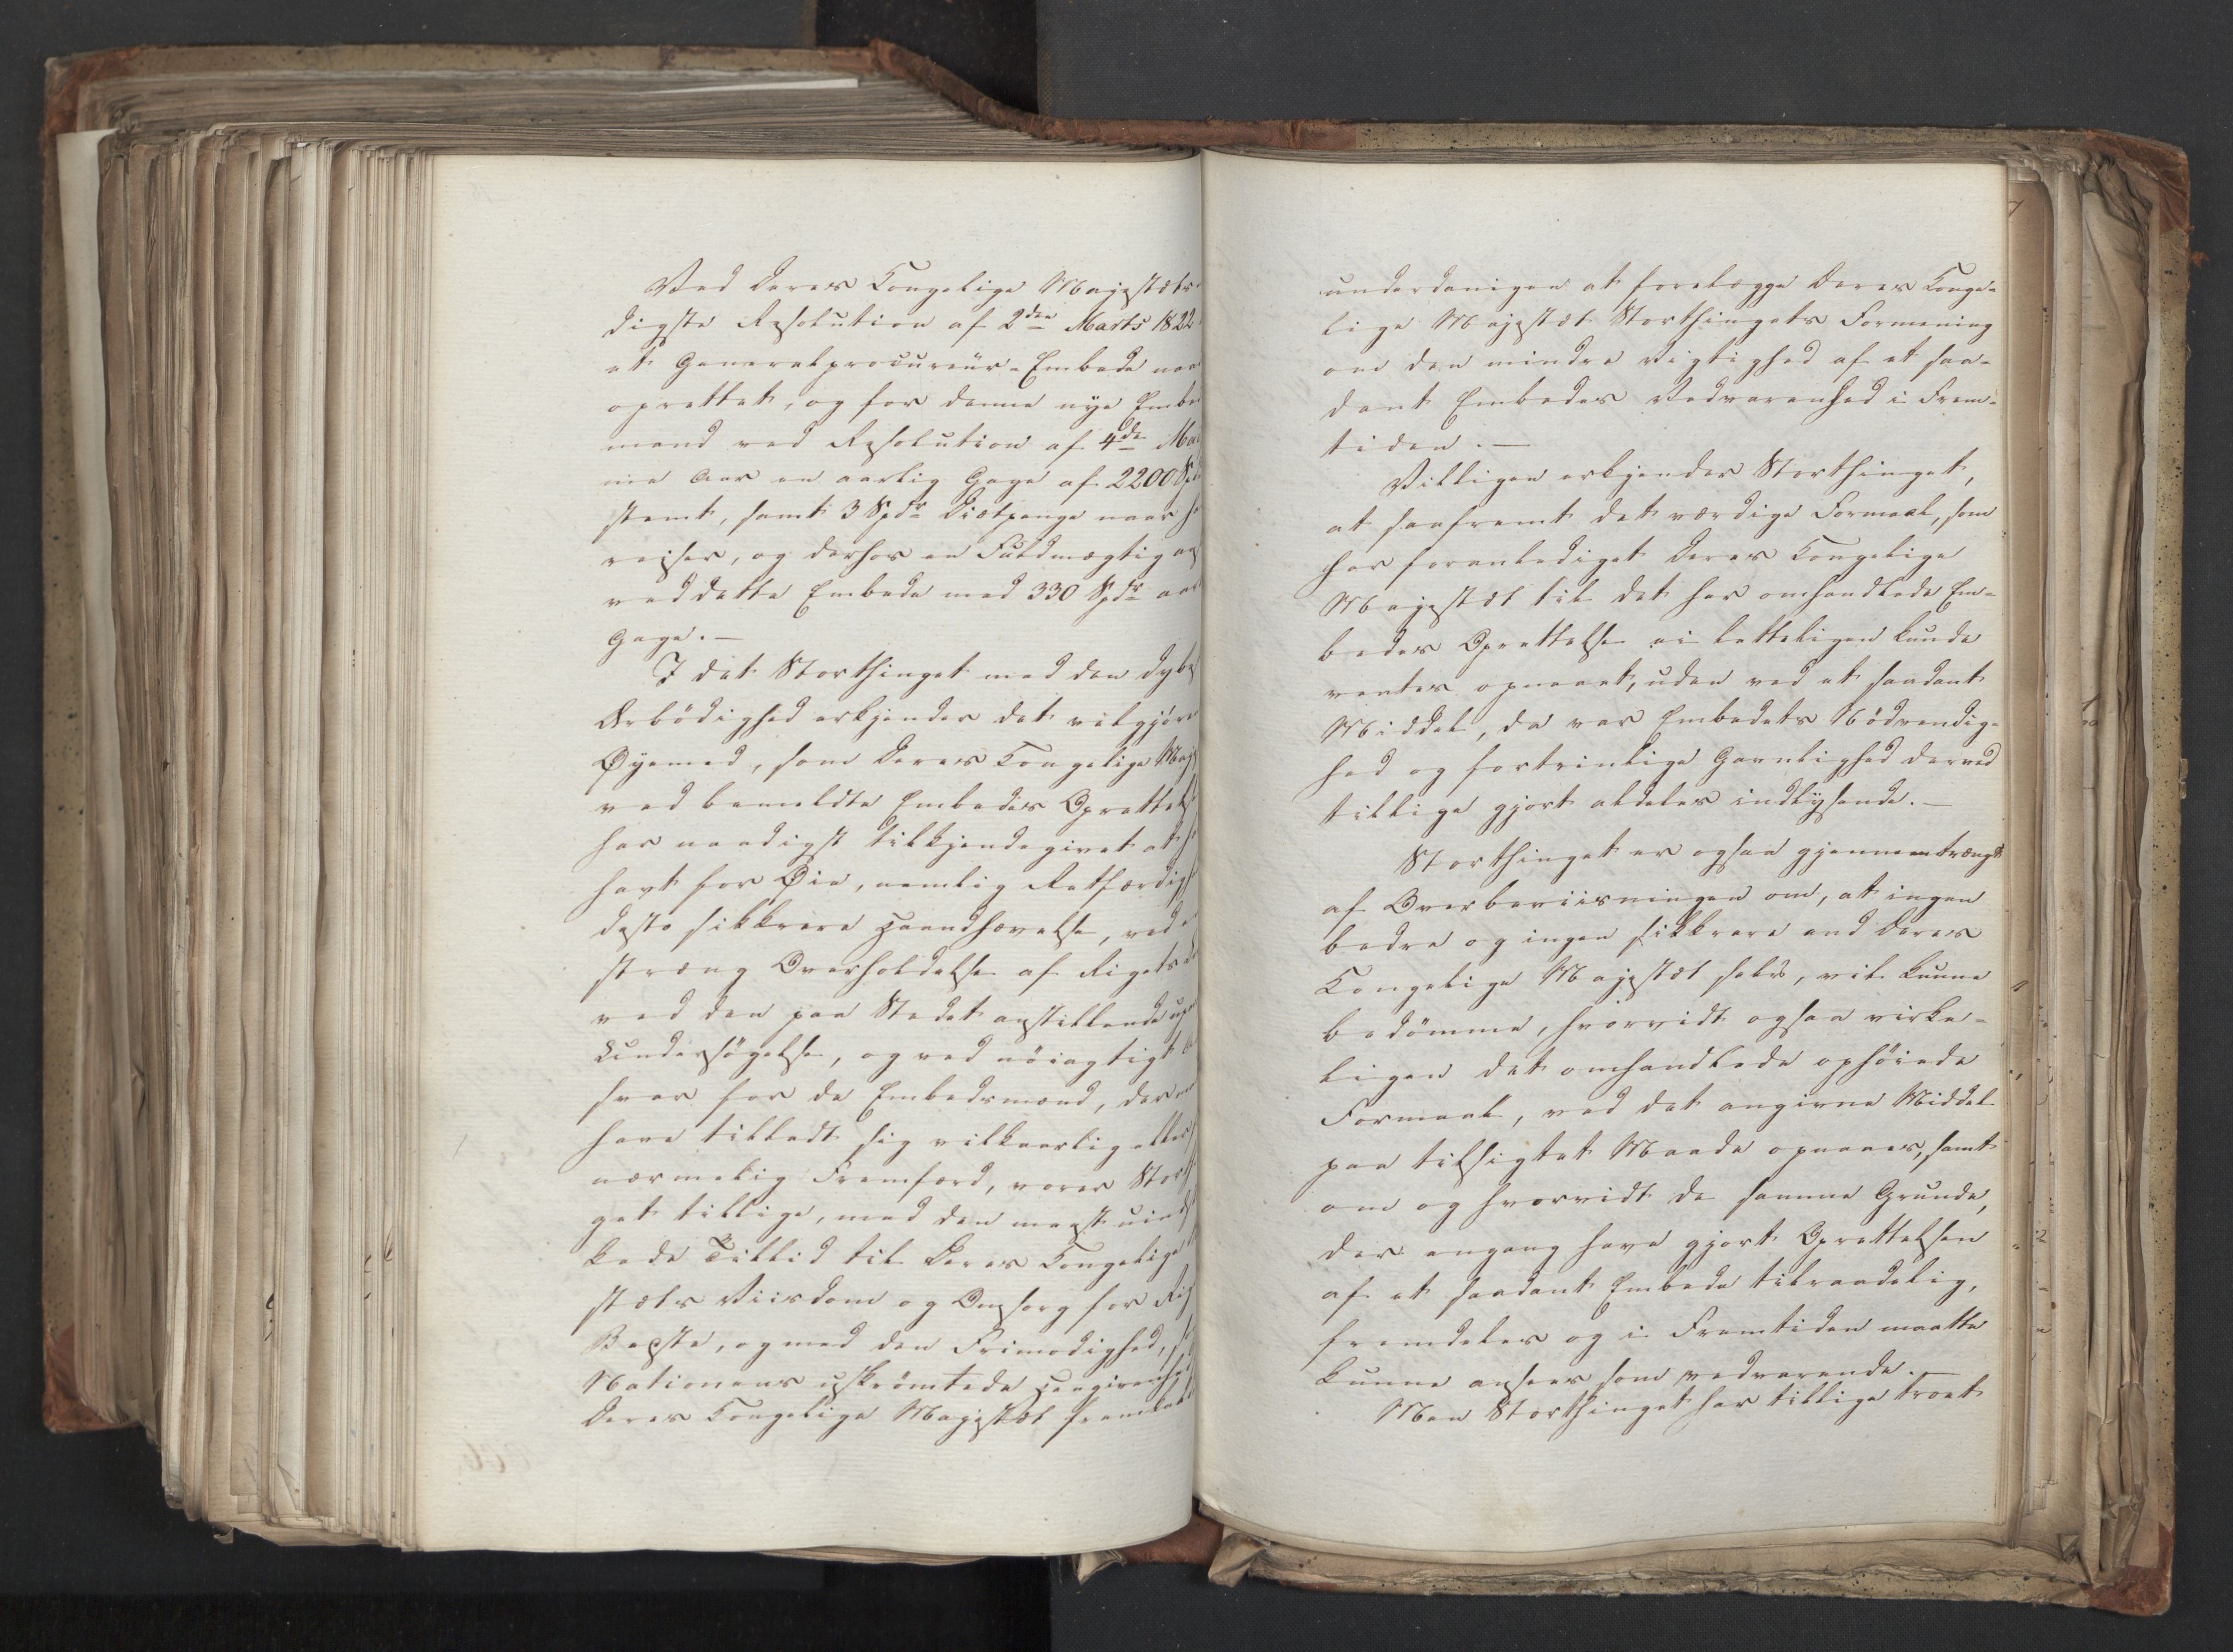 Ved Deres Kongelige Majestæts
digste Resolution af 2den Marts 1822
et Generalprocureur-Embede
oprettet, og for denne nye
mand ved Resolution af 4de
me Aar en aarlig Gage af 2200
stemt, samt 3 Spdr Diætpenge naar
reiser, og derhos en Fuldmægtig
ved dette Embede med 330 Spdr
Gage. —
I det Storthinget med den
Ærbödighed erkjender det
Øyemed, som Deres Kongelige
ved bemeldte Embedes
har naadigst tilkjendegivet at
havt for Øie, nemlig
desto sikkrere Haandhævelse, ved
stræng Overholdelse af Rigets
ved den paa Stedet anstillende
Undersögelse, og ved nöiagtigt
svar for de Embedsmænd, der
have tilladt sig vilkaarlig eller
nærmelig Fremfærd, vover
get tillige, med den meest
kede Tillid til Deres Kongelige
stæts Viisdom og Omsorg for
Beste, og med den Frimodighed,
Nationens uskrömtede
Deres Kongelige Majestæt
underdanigen at forelægge Deres Konge-
lige Majestæt Storthingets Formening
om den mindre Vigtighed af et saa-
dant Embedes Vedvarenhed i Frem-
tiden. —
Villigen erkjender Storthinget,
at saafremt det værdige Formaal, som
har foranlediget Deres Kongelige
Majestæt til det her omhandlede Em-
bedes Oprettelse ei letteligen kunde
ventes opnaaet, uden ved et saadant
Middel, da var Embedets Nödvendig-
hed og fortrinlige Gavnlighed derved
tillige gjort aldeles indlysende. —
Storthinget er ogsaa gjennemtrængt
af Overbeviisningen om, at ingen
bedre og ingen sikkrere end Deres
Kongelige Majestæt selv, vil kunne
bedömme, hvorvidt ogsaa virke-
ligen det omhandlede ophöiede
Formaal, ved det angivne Middel
paa tilsigtet Maade opnaaes, samt
om og hvorvidt de samme Grunde,
der engang have gjort Oprettelsen
af et saadant Embede tilraadelig,
fremdeles og i Fremtiden maatte
kunne ansees som vedvarende. —
Men Storthinget har tillige troet